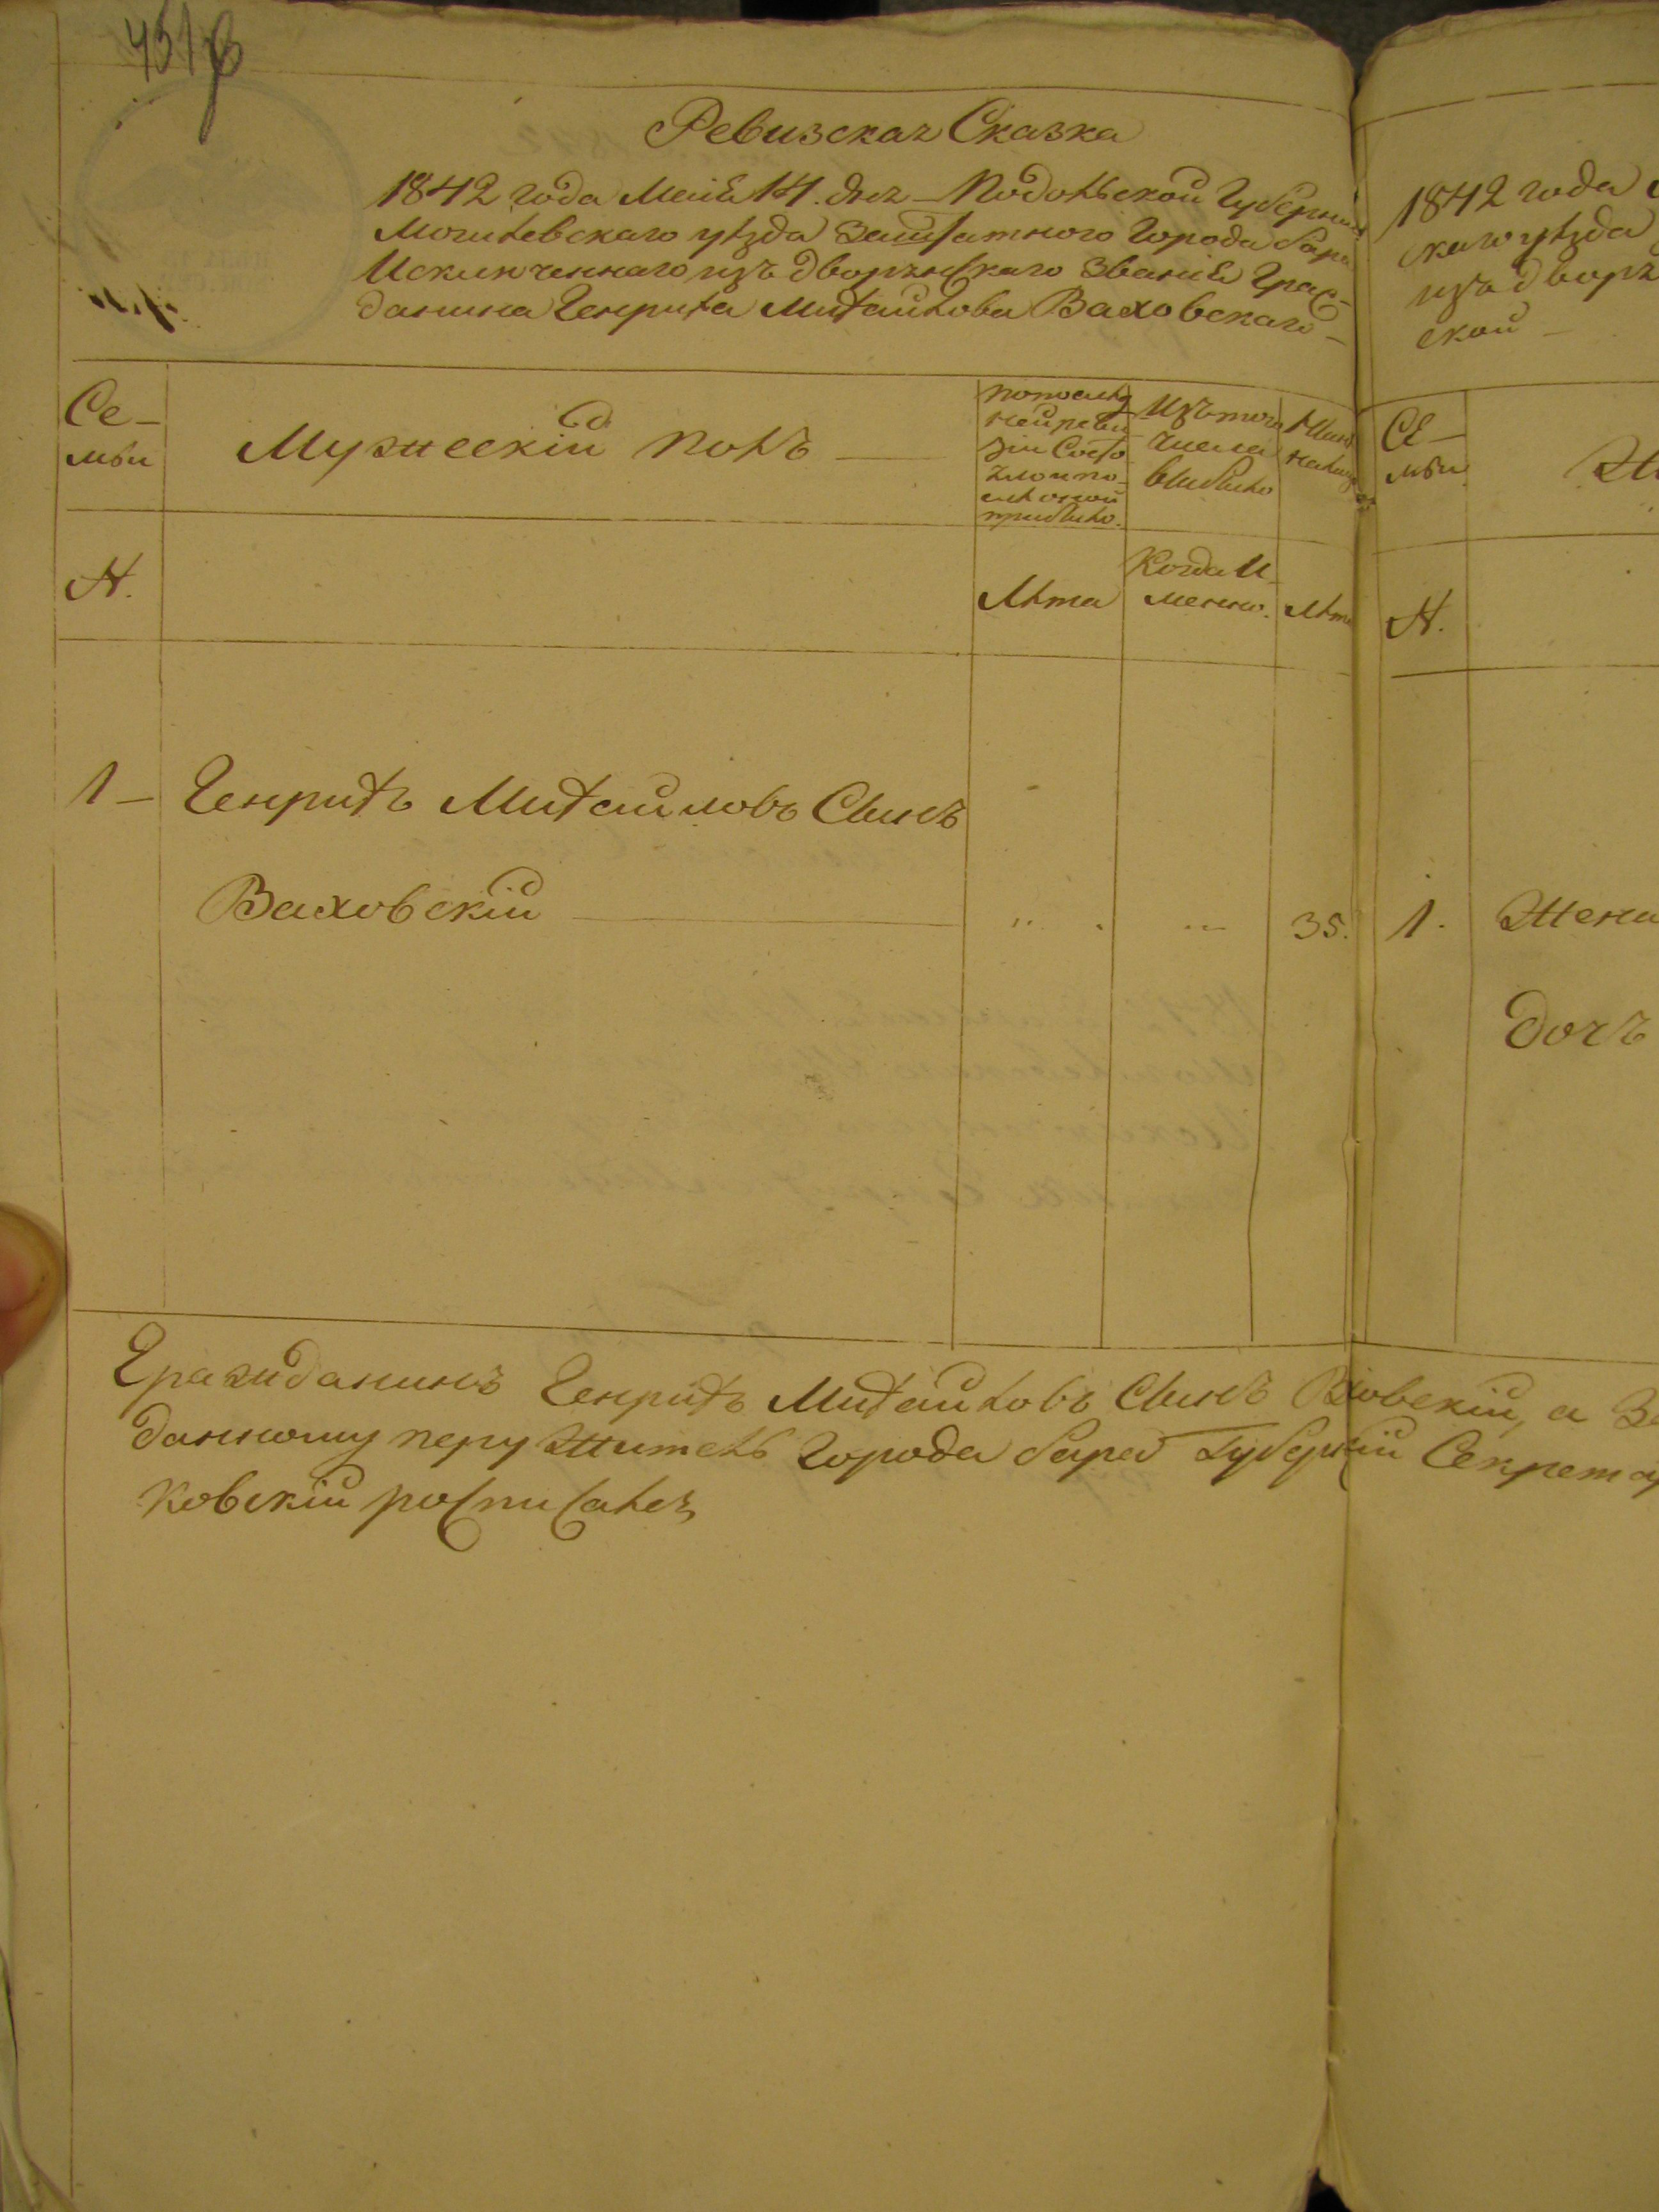 451
Ревизская Сказка
1842 года Маія 14. дня – Подольской Губерніи
Могилевскаго уѣзда Заштатного Города Бара
Исключеннаго изъ дворянскаго Званія Граж-
данина Генриха Михайлова Ваховскаго –
Се-
мьи
Мужескій полъ
По послѣд
ней реви
зіи Состо
яло и по
слѣ оной
прибыло.
Изъ того
числа
выбыло
Нынѣ
на лицо
№.
Лѣта
Когда И-
менно.
Лѣта
1 – Генрихъ Михаиловъ Сынъ
Ваховскій 35.
Гражданинъ Генрихъ Михайловъ Сынъ Ваховскій, а
данному неру Житель Города Бара Губернскій Секретар
ковскій росписался
1842 года
скаго уѣзда
изъ дворя
ской –
Се-
мьи
Ж
№.
1. Жена
Дочь